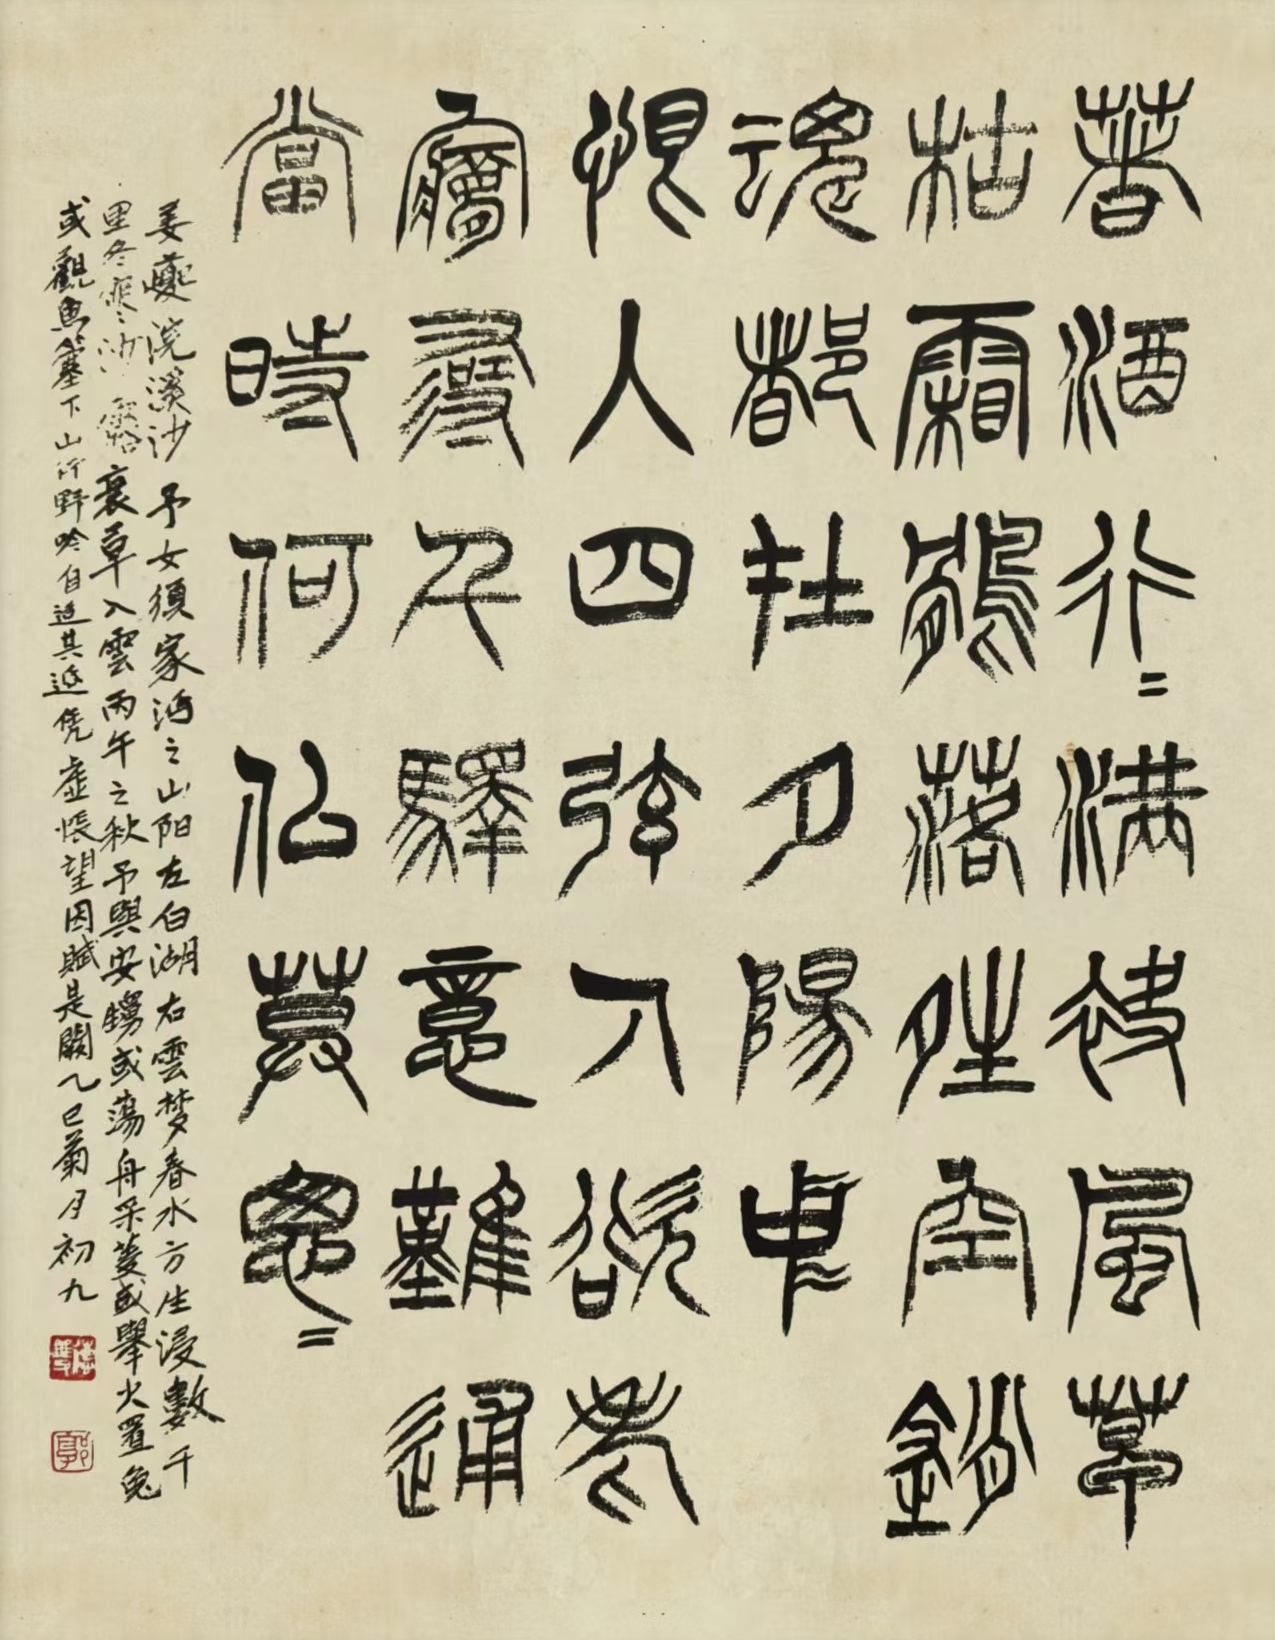 著酒行=滿袂風草
枯霜鶻落晴空銷
魂都在夕陽中
恨人四弦入欲老
夢尋千驛意難通
當時何似莫怱=
姜夔浣溪沙 予女須家沔之山阳左白湖右雲梦春水方生浸數千
里冬寒沙露衰草入雲丙午之秋予與安甥或蕩舟采菱或舉火罝兔
或觀魚簺下山行野吟自适其适凭虛悵望因賦是闋乙巳菊月初九